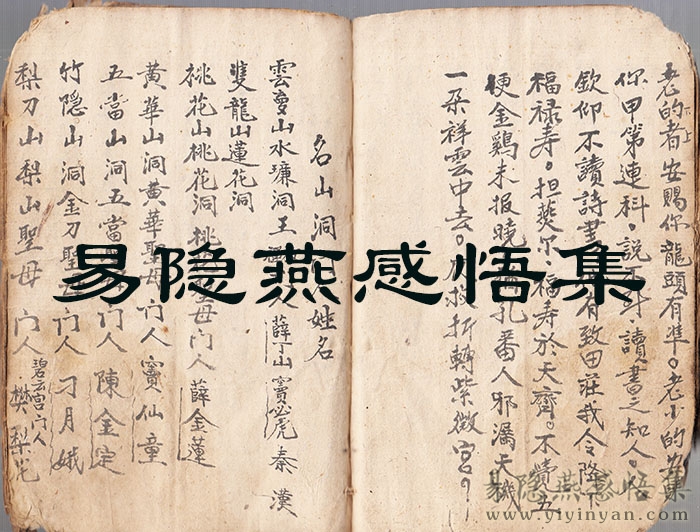 老的者安赐你龍頭有準。老小的安
你甲第連科。說不。讀書之知人。
欽仰不讀詩書有致田莊我令降下
福禄寿。担尔福寿於天齊。不費五
更金鷄未报曉孔番人邪漏天機
一朵祥雲中去。折轉紫微宫。
名山洞姓名
雲夢山水濂洞王人薛丁山竇必虎秦漢
雙龍山蓮花洞
桃花山桃花洞桃母门人薛金蓮
黄華山洞黄華聖母门人竇仙童
五當山洞五當门人陳金定
竹隐山洞金刀聖母门人刁月娥
梨刀山梨山聖母门人碧云宫门人樊梨花
易隐燕感悟集
易隐燕感悟集
www.yiyinyan.com